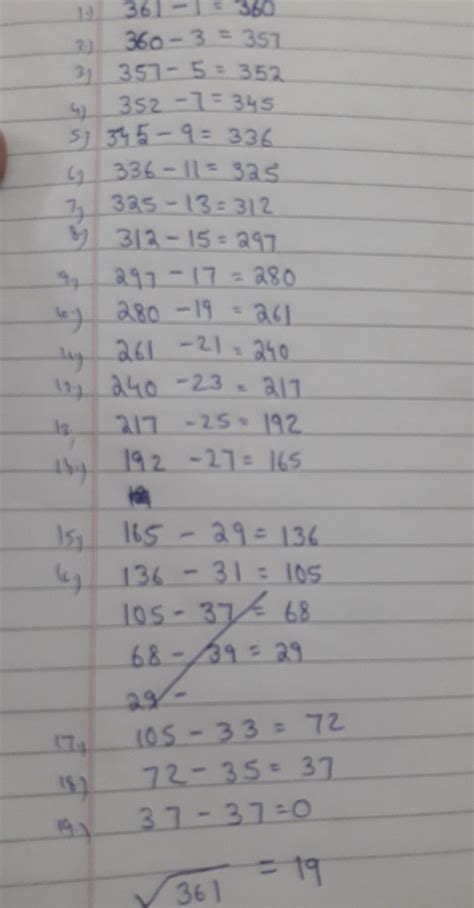 1) 361 - 1 = 360
2) 360 - 3 = 357
3) 357 - 5 = 352
4) 352 - 7 = 345
5) 345 - 9 = 336
6) 336 - 11 = 325
7) 325 - 13 = 312
8) 312 - 15 = 297
9) 297 - 17 = 280
10) 280 - 19 = 261
11) 261 - 21 = 240
12) 240 - 23 = 217
13) 217 - 25 = 192
13) 192 - 27 = 165
15) 165 - 29 = 136
16) 136 - 31 = 105
105 - 37 = 68
68 - 39 = 29
29 -
17) 105 - 33 = 72
18) 72 - 35 = 37
19) 37 - 37 = 0
√361 = 19